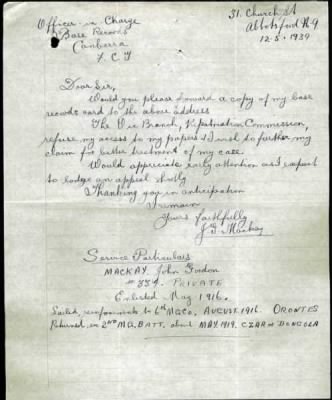 Officer in Charge
Base Records
Canberra
F.C.T
31. Church St
Abbotsford N9
12.5.1939
Dear Sir,
Would you please forward a copy of my base
records card to the above address
The Vic Branch, Repatriation Commission,
refuse my access to my papers & I wish to further my
claim for better treatment of my case.
Would appreciate early attention as I expect
to lodge an appeal shortly
Thanking you in anticipation
I remain
Yours faithfully
J.G. Mackay
Service Particulars
MACKAY John Gordon
PRIVATE
Enlisted May 1916.
Sailed, reinforcements to 6th MG Co. AUGUST. 1916. ORONTES
Returned in 2nd MG. BATT. about MAY 1919. CZAR & DONGOLA